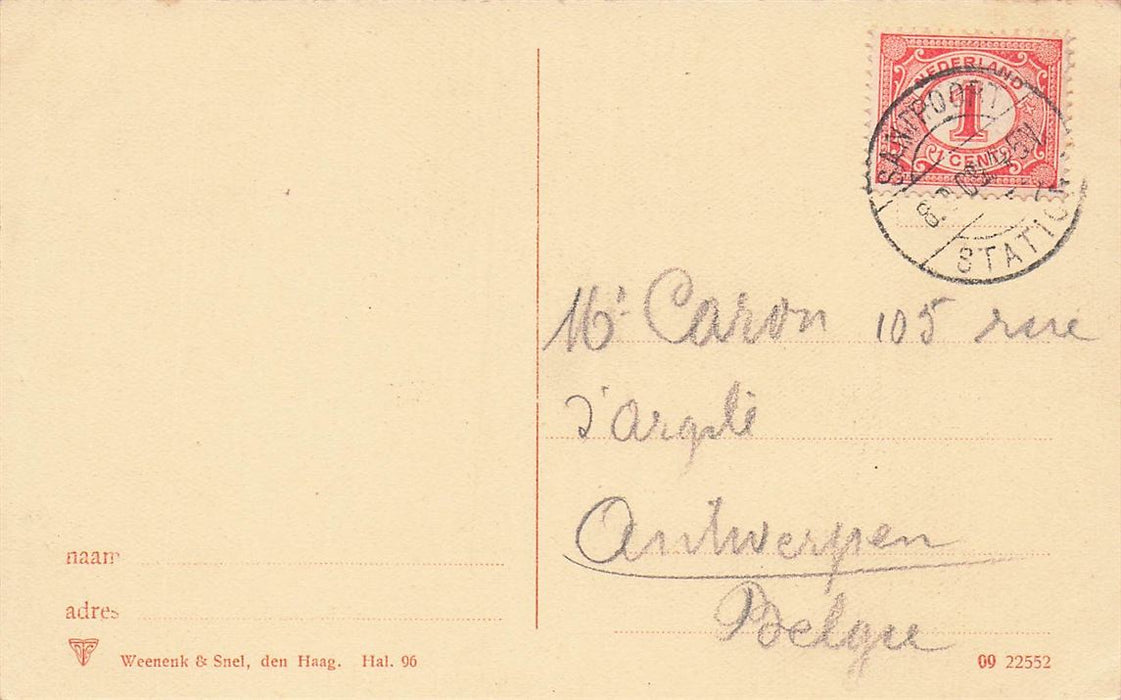 NEDERLAND
1
1 CENT
SANTPOORT
STATION
Mr Caron 105 rue
d'argile
Antwerpen
Belgie
naam
adres
Weenenk & Snel, den Haag. Hal. 96
09 22552